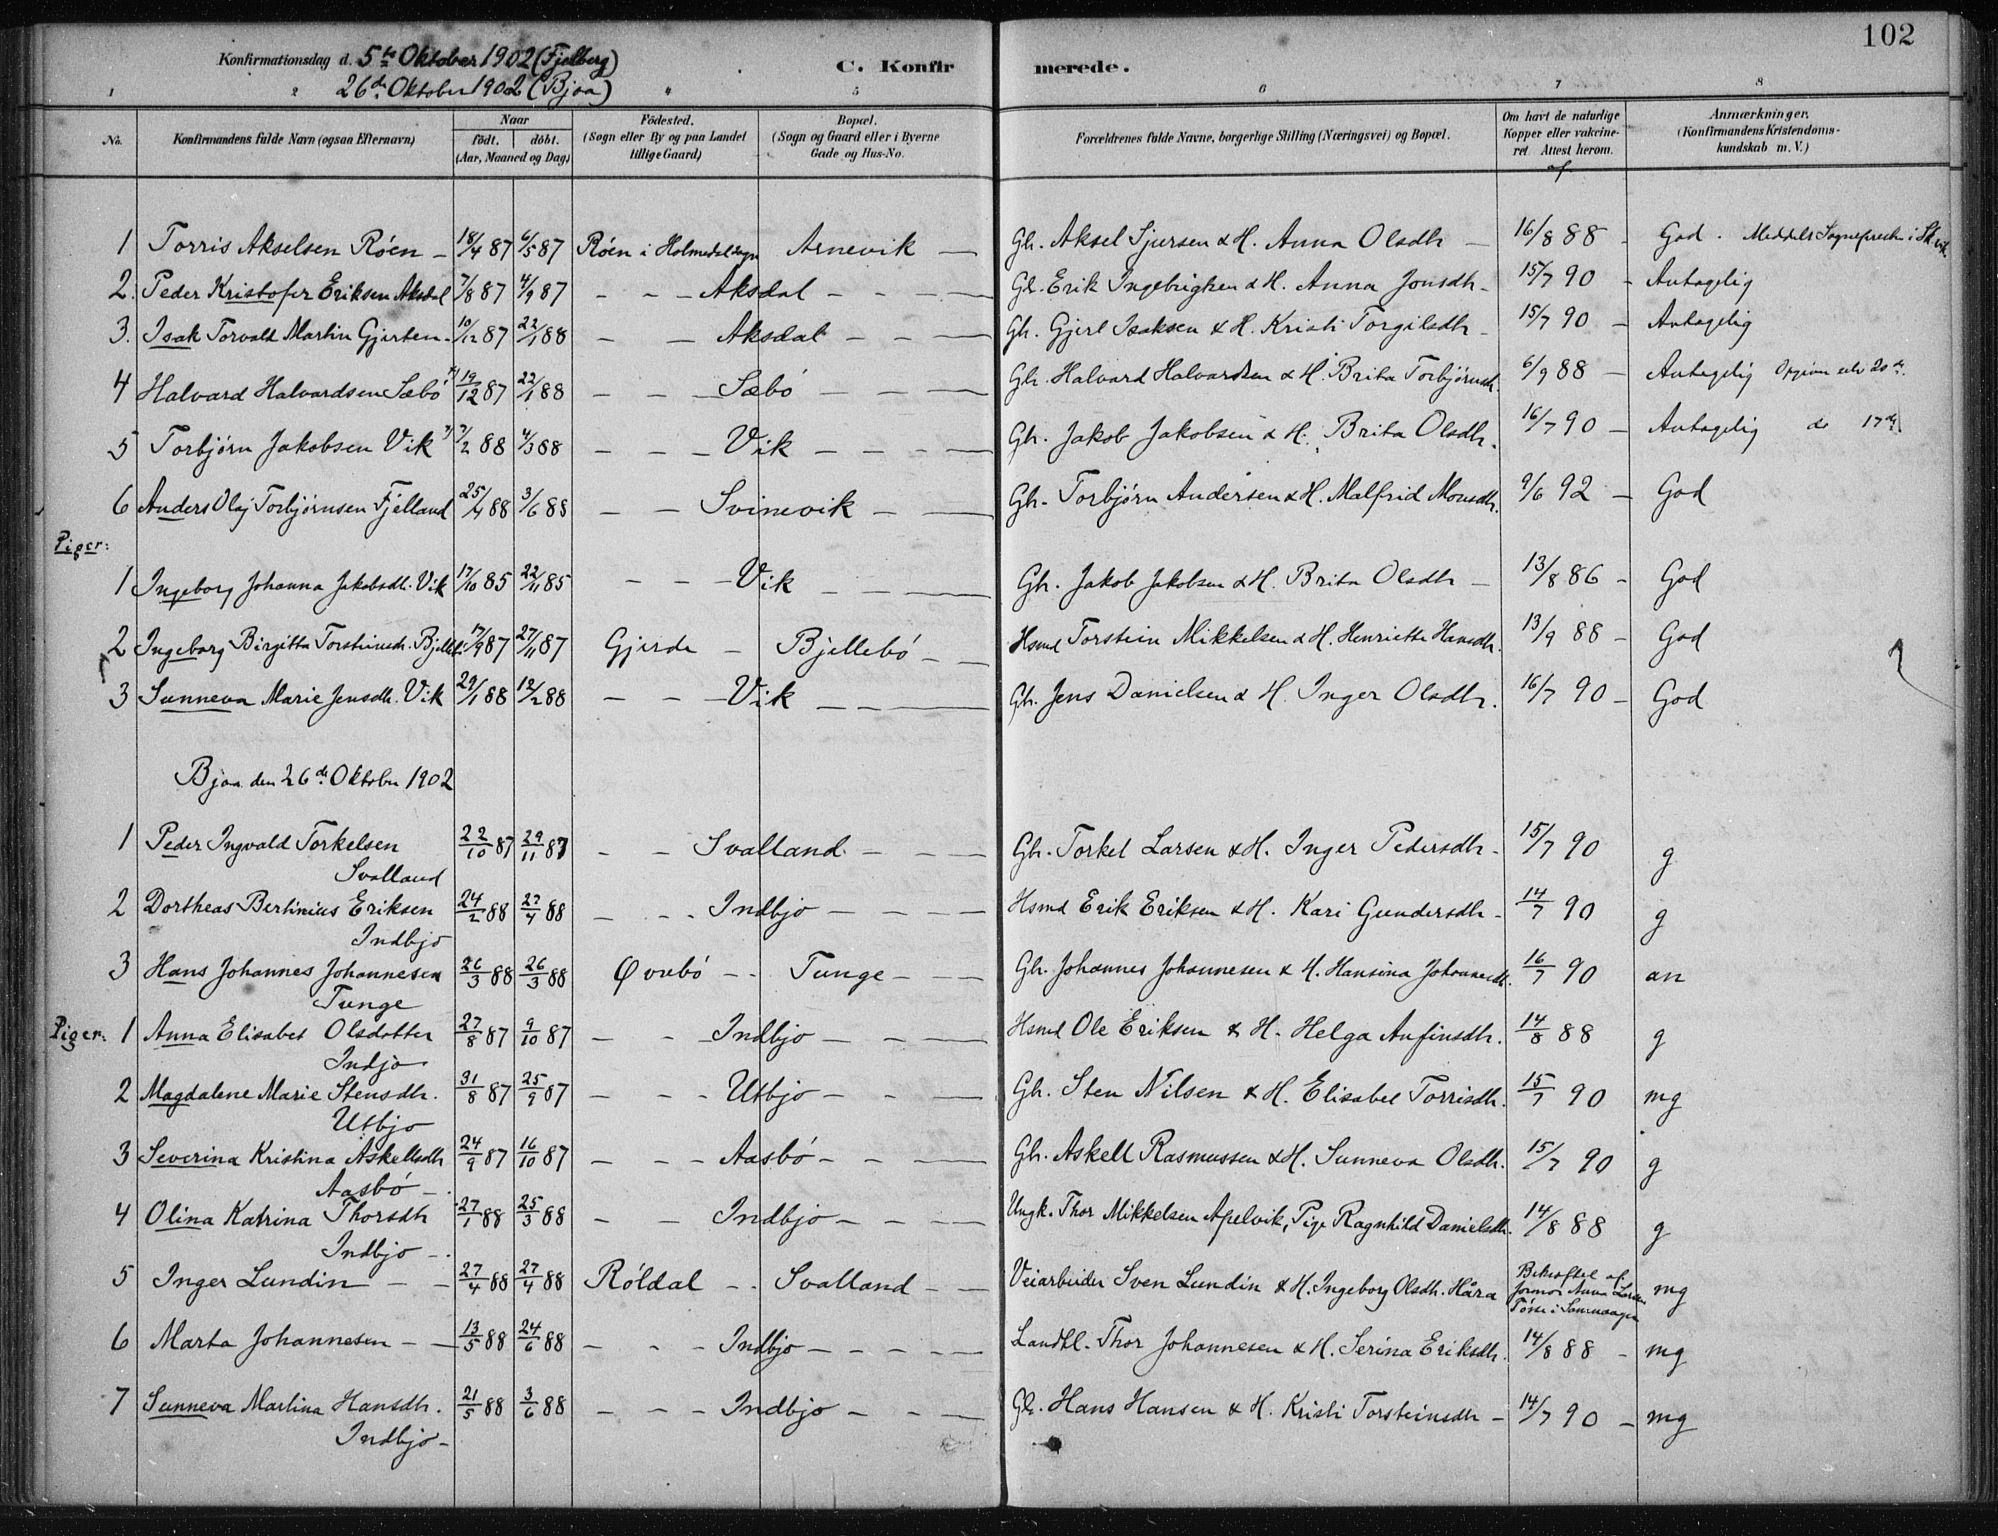 102
Konfirmationsdag d. 5te Oktober 1902 (Fjelberg)
26de Oktober 1902 (Bjoa)
C. Konfirmerede.
1 2 4 5 6 7 8
No. Konfirmandens fulde Navn (ogsaa Efternavn) Naar födt. döbt. (Aar, Maaned og Dag) Födested. (Sogn eller By og paa Landet tillige Gaard) Bopæl. (Sogn og Gaard eller i Byerne Gade og Hus-No. Forældrenes fulde Navne, borgerlige Stilling (Næringsvei) og Bopæl. Om havt de naturlige Kopper eller vakcineret Attest herom. Anmærkninger. (Konfirmandens Kristendomskundskab m. V.)
1 Torris Akselsen Röen - 18/4 87 6/5 87 Röen i Holmedal sogn Arnevik - Gb. Aksel Sjursen & H. Anna Olsdtr - 16/8 88 - God. Meddelt Sognepresten i
2. Peder Kristofer Eriksen Aksdal 7/8 87 4/9 87 - - - Aksdal - - - - Gb. Erik Ingebrigtsen & H. Anna Jonsdtr - 15/7 90 - Antagelig
3. Isak Torvald Martin Gjertsen - 10/12 87 22/1 88 - - Aksdal - - - Gb. Gjert Isaksen & H. Kristi Torgilsdtr - 15/7 90 - Antagelig
4 Halvard Halvardsen Sæbö 19/12 87 22/1 88 - - - Sæbö - - - - Gb. Halvard Halvardsen & H. Brita Torbjörnsd. 6/9 88 - Antagelig
5 Torbjörn Jakobsen Vik 7/2 88 4/3 88 - - - Vik - - - - Gb. Jakob Jakobsen & H. Brita Olsdtr. 16/7 90 - Antagelig do 17de
6 Anders Olaj Torbjörnsen Fjelland 25/4 88 3/6 88 - - Svinevik - - - Gb. Torbjörn Andersen & H. Malfrid Monsdtr. 9/6 92 - God
Piger:
1 Ingeborg Johanna Jakobsdtr. Vik 17/10 85 22/11 85 - - - Vik - - - Gb. Jakob Jakobsen & H. Brita Olsdtr - 13/8 86 - God
2 Ingeborg Birgitta Torsteinsdr. Bjellebö 17/9 87 27/11 87 Gjerde - Bjellebö - - Hsmd Torstein Mikkelsen & H. Henriette Hansdtr. 13/9 88 - God
3 Sunneva Marie Jensdtr. Vik 29/1 88 12/2 88 - - - Vik - - - Gb. Jens Danielsen & H. Inger Olsdtr. 16/7 90 - God
Bjoa den 26de Oktober 1902
1 Peder Ingvald Torkelsen Svalland 22/10 87 29/11 87 - - Svalland - - - Gb. Torkel Larsen & H. Inger Pedersdtr - 15/7 90 g
2 Dortheas Bertinius Eriksen Indbjo 24/2 88 27/4 88 - - - Indbjo - - - - Hsmd Erik Eriksen & H. Kari Gundersdtr - 14/7 90 g
3 Hans Johannes Johannesen Tunge 26/3 88 26/3 88 Övrebö - - Tunge - - - Gb. Johannes Johannesen & H. Hansina Johannesdtr. 16/7 90 an
Piger: 1 Anna Elisabet Olsdotter Indjo 27/8 87 9/10 87 - - Indbjo - - - Hsmd Ole Eriksen & H. Helga Anfinsdtr. 14/8 88 g
2 Magdalene Marie Stensdtr. Utbjo 31/8 87 25/9 87 - - - Utbjo - - - Gb. Sten Nilsen & H. Elisabet Torrisdtr. 15/7 90 mg
3 Severina Kristina Askellsdtr Aasbö - 24/9 87 16/10 87 - - - Aasbö - - - Gb. Askell Rasmussen & H. Sunneva Olsdtr. 15/7 90 g
4 Olina Katrina Thorsdtr Indbjo - 27/1 88 25/3 88 - - Indbjo - - - Ungk. Thor Mikkelsen Apelvik, Pige Ragnhild Danielsdtr. 14/8 88 g
5 Inger Lundin - - 27/4 88 27/4 88 Röldal - - Svalland - - Veiarbeider Sven Lundin & H. Ingeborg Olsdtr. Håra Bekræftet af formor Anna Larsen mg
6 Marta Johannesen - - 13/5 88 24/6 88 - - - Indbjo - - - - Landhl. Thor Johannesen & H. Serina Eriksdtr. 14/8 88 - mg
7 Sunneva Martina Hansdtr. Indbjo - 21/5 88 3/6 88 - - - Indbjo - - - Gb. Hans Hansen & H. Kristi Torsteinsdtr - 14/7 90 - mg